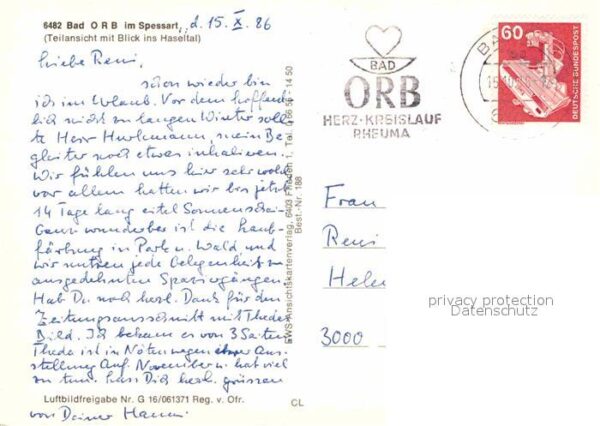 6482 Bad ORB im Spessart, d. 15. X. 86
(Teilansicht mit Blick ins Haseltal)
Liebe Reni,
schon wieder bin
ich im Urlaub. Vor dem hoffent-
lich nicht zu langen Winter sollte
Herr Hurkmann, mein Be-
gleiter noch etwas inhalieren.
Wir fühlen uns hier sehr wohl
vor allem hatten wir bis jetzt
14 Tage lang eitel Sonnenschein.
Ganz wunderbar ist die Laub-
färbung in Park u. Wald und
wir nutzen jede Gelegenheit zu
ausgedehnten Spaziergängen.
Hab Du noch herzl. Dank für den
Zeitungsausschnitt mit Thedas
Bild. Ich bekam es von 3 Seiten
Theda ist in Nöten wegen ihrer Aus-
stellung Anf. November u. hat viel
zu tun. Lass Dich herzl. grüssen
von Deiner Hanni
Luftbildfreigabe Nr. G 16/061371 Reg. v. Ofr.
CL
EWS-Ansichtskartenverlag, 6403 Flieden 1, Tel. 0 66 55 - 14 50
Best.-Nr. 188
BAD
ORB
HERZ·KREISLAUF
RHEUMA
60
DEUTSCHE BUNDESPOST
Frau
Reni
Helen
3000
privacy protection
Datenschutz